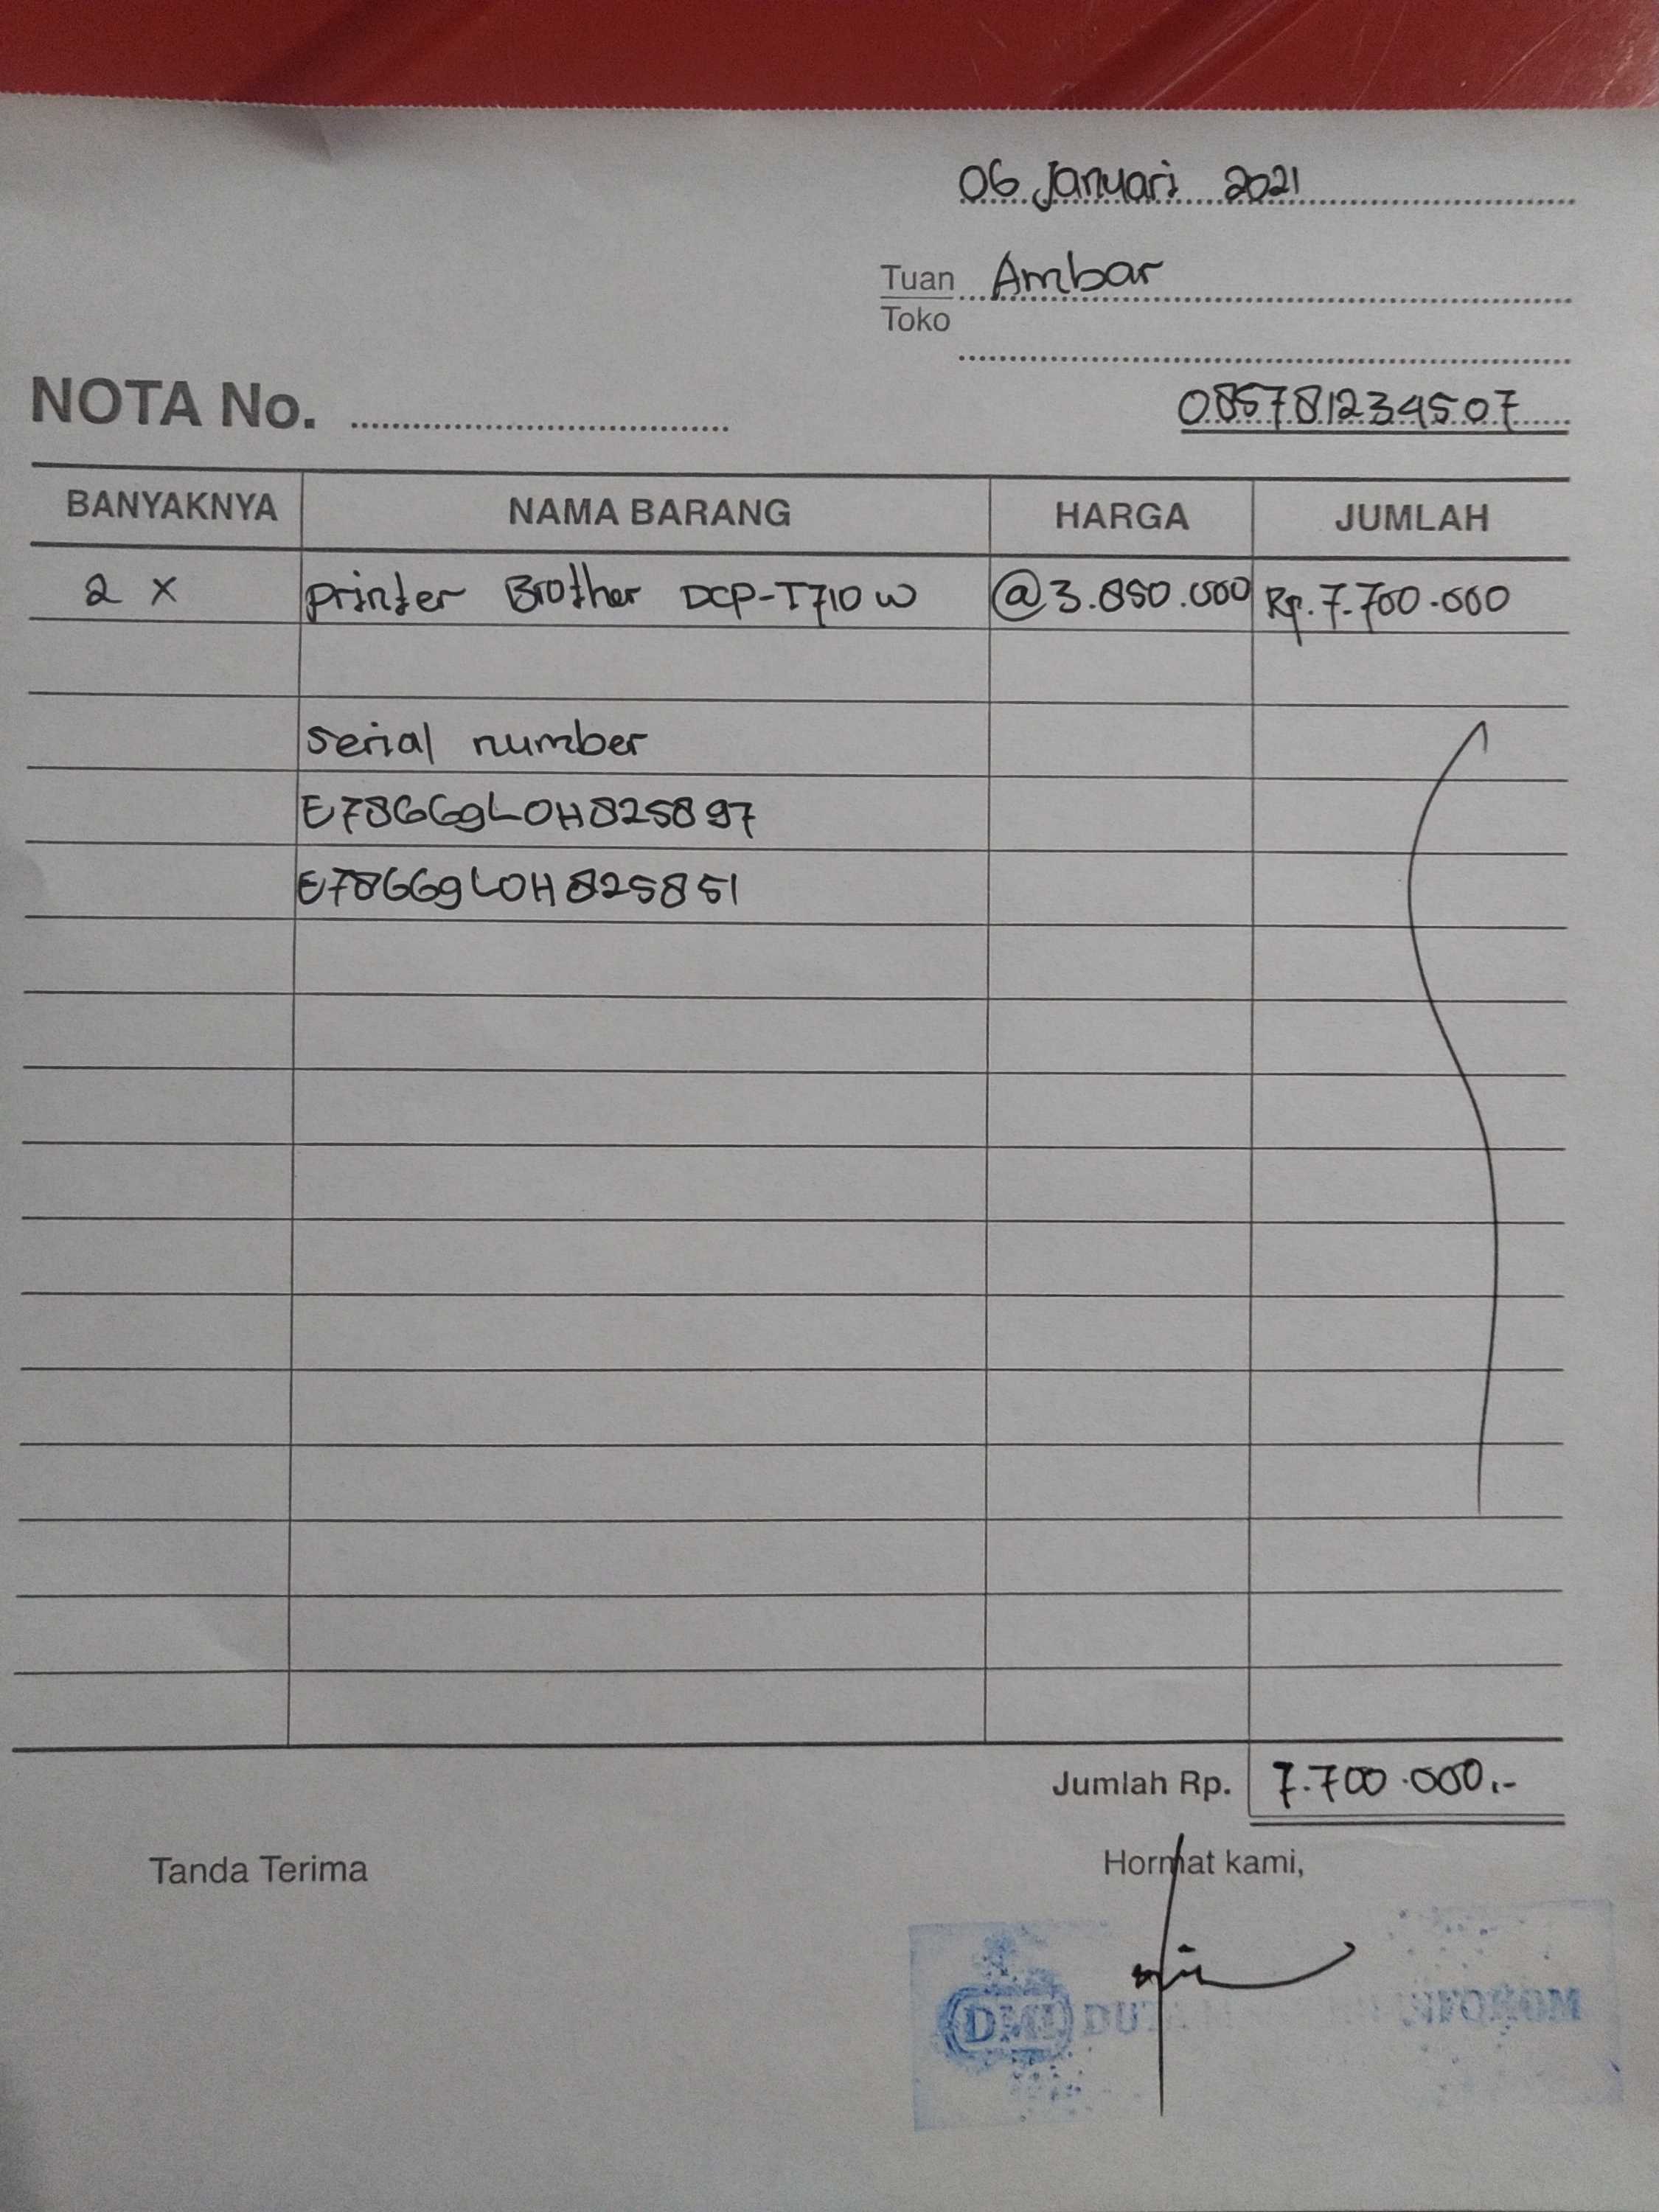 06 Januari 2021
Tuan Ambar
Toko
NOTA No.
085781234507
BANYAKNYA NAMA BARANG HARGA JUMLAH
2 x printer Brother DCP-T710W @3.850.000 Rp.7.700.000
serial number
E78669L0H825897
E78669L0H825851
Jumlah Rp. 7.700.000.-
Tanda Terima
Hormat kami,
DMI